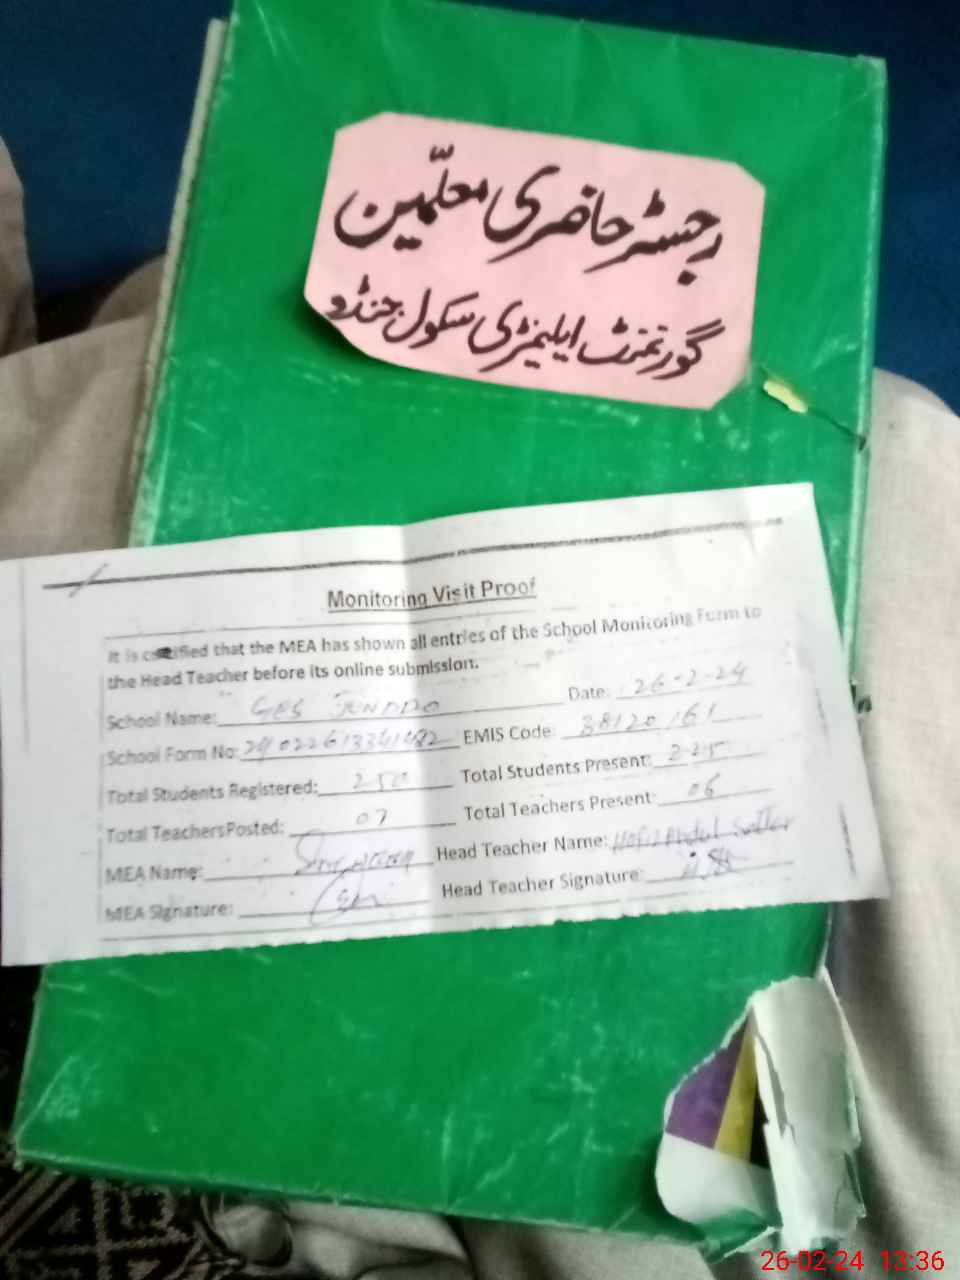 رجسٹر حاضری معلّمین
گورنمنٹ ایلیمنٹری سکول جنڈو
Monitoring Visit Proof
It is certified that the MEA has shown all entries of the School Monitoring Form to
the Head Teacher before its online submission.
School Name: GES JUNDDO Date: 26-2-24
School Form No: EMIS Code: 38120161
Total Students Registered: 250 Total Students Present: 225
Total TeachersPosted: 07 Total Teachers Present: 06
MEA Name: Head Teacher Name: Hafiz Abdul Sattar
MEA Signature: Head Teacher Signature:
26-02-24 13:36